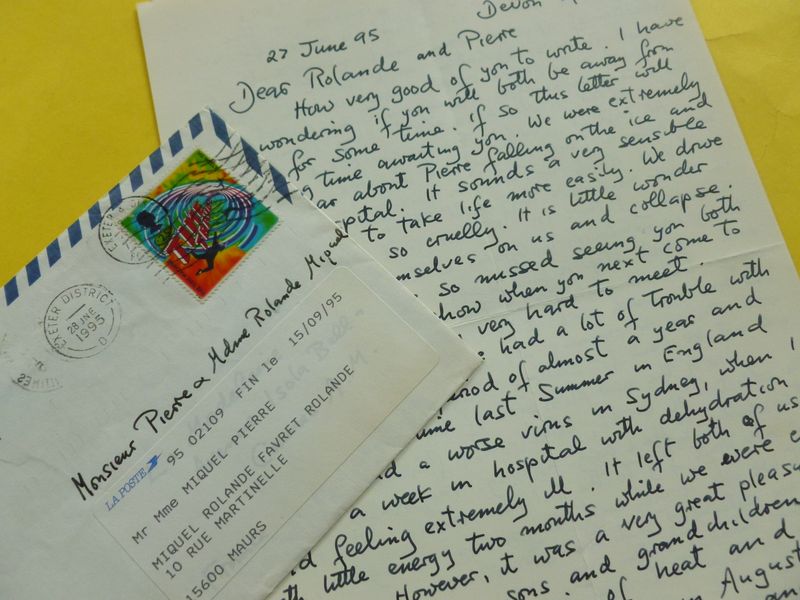 Devon
27 June 95
Dear Rolande and Pierre
How very good of you to write. I have
wondering if you will both be away from
for some time. if so this letter will
time awaiting you. We were extremely
about Pierre falling on the ice and
It sounds a very sensible
to take life more easily. We drive
so cruelly. It is little wonder
on us and collapse.
so missed seeing you both
how when you next come to
very hard to meet.
had a lot of trouble with
of almost a year and
last Summer in England
a worse virus in Sydney, when I
a week in hospital with dehydration
feeling extremely ill. It left both of us
little energy two months while we were
However, it was a very great pleasu
sons and grandchildren
of heat and
August
EXETER DISTRICT
28 JNE
1995
D
EXETER
Monsieur Pierre & Mdme Rolande Miquel
LA POSTE
95 02109 FIN le 15/09/95
Mr Mme MIQUEL PIERRE
MIQUEL ROLANDE FAVRET ROLANDE M
10 RUE MARTINELLE
15600 MAURS